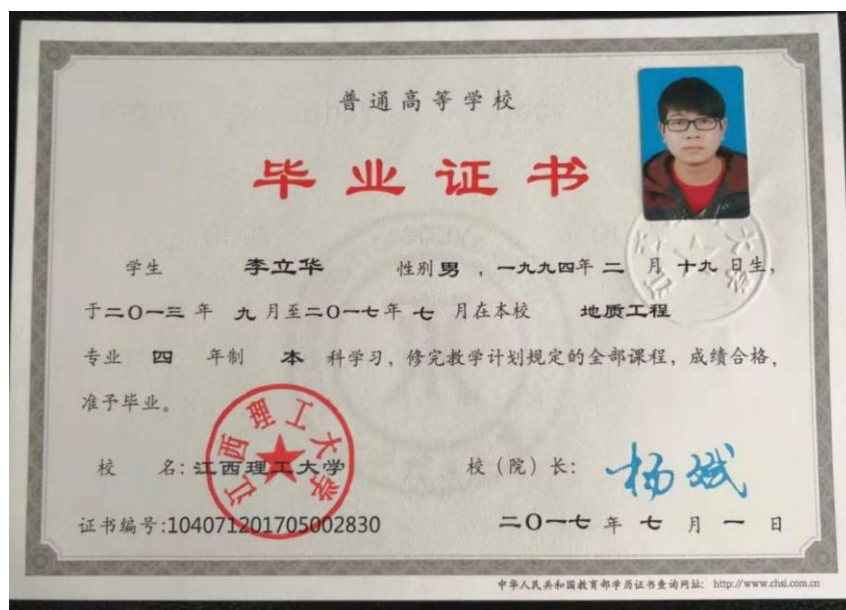 普通高等学校
毕业证书
学生 李立华 性别 男 ，一九九四年 二 月 十九 日生，
于二〇一三 年 九 月至二〇一七年 七 月在本校 地质工程
专业 四 年制 本 科学习，修完教学计划规定的全部课程，成绩合格，
准予毕业。
江西理工大学
校 名：江西理工大学 校（院）长：杨斌
证书编号:104071201705002830 二〇一七 年 七 月 一 日
中华人民共和国教育部学历证书查询网址：http://www.chsi.com.cn